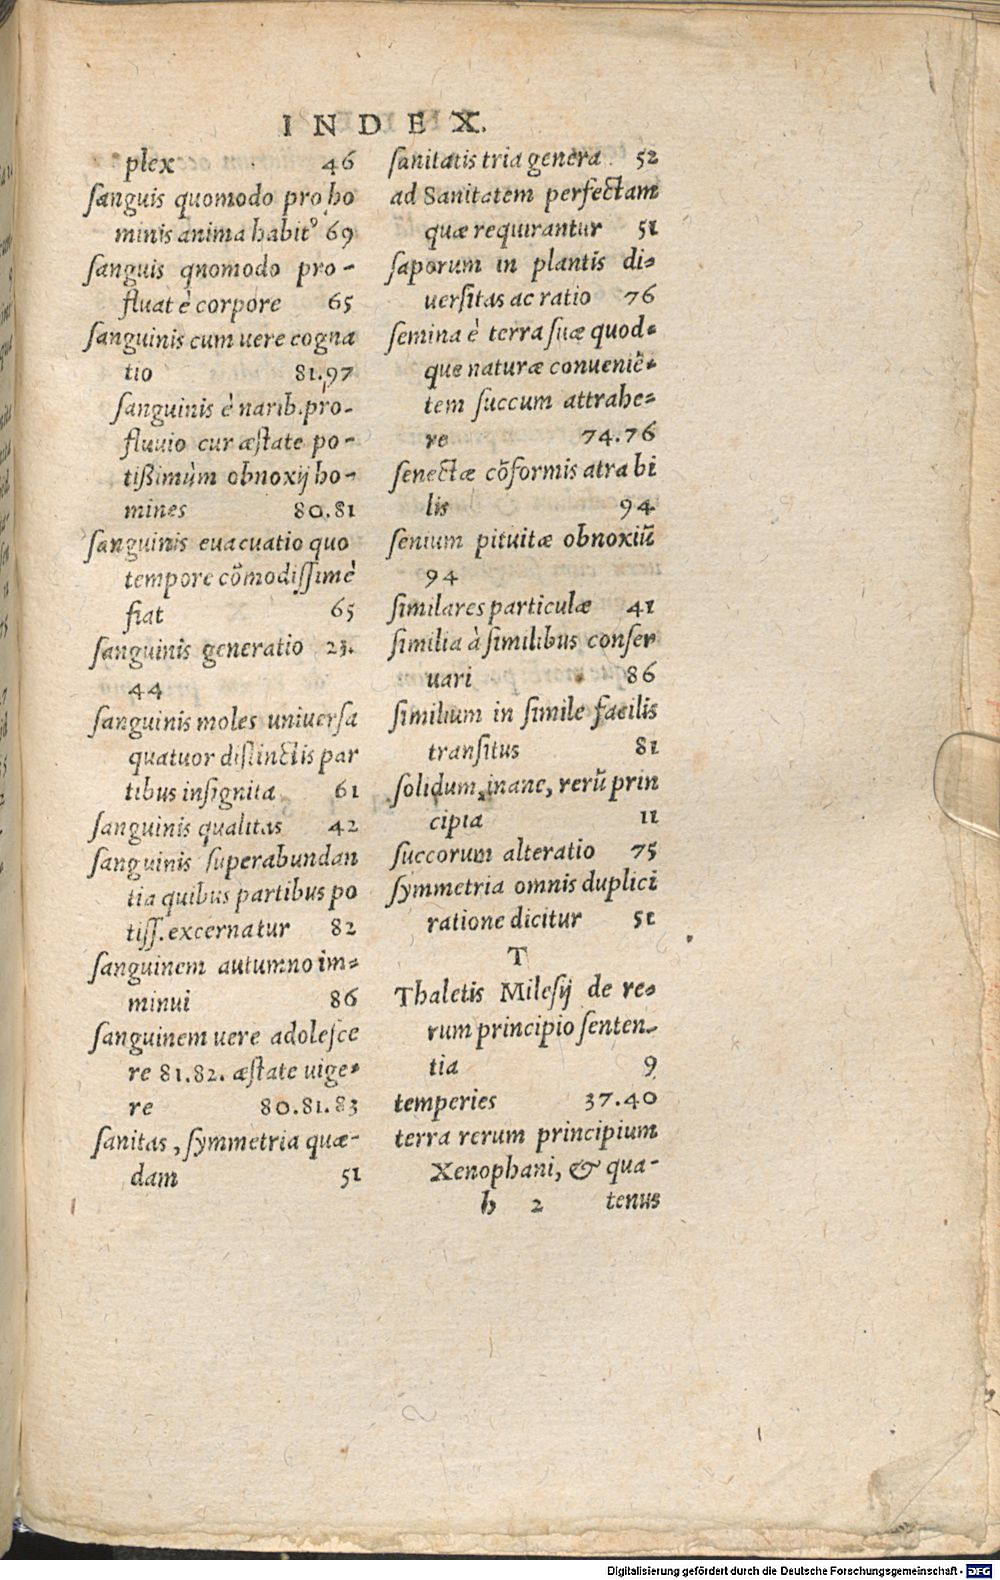 INDEX.
plex 46
ſanguis quomodo pro ho
minis anima habit᾽ 69
ſanguis qnomodo pro-
fluat è corpore 65
ſanguinis cum uere cogna
tio 81.97
ſanguinis è narib.pro-
fluuio cur æſtate po-
tißimùm obnoxij ho-
mines 80.81
ſanguinis euacuatio quo
tempore cõmodiſſimè
fiat 65
ſanguinis generatio 23.
44
ſanguinis moles uniuerſa
quatuor diſtinctis par
tibus inſignita 61
ſanguinis qualitas 42
ſanguinis ſuperabundan
tia quibus partibus po
tiſſ.excernatur 82
ſanguinem autumno im-
minui 86
ſanguinem uere adoleſce
re 81.82. æſtate uige-
re 80.81.83
ſanitas, ſymmetria quæ-
dam 51
ſanitatis tria genera 52
ad Sanitatem perfectam
quæ requirantur 51
ſaporum in plantis di-
uerſitas ac ratio 76
ſemina è terra ſuæ quod-
que naturæ conueniẽ-
tem ſuccum attrahe-
re 74.76
ſenectæ cõformis atra bi
lis 94
ſenium pituitæ obnoxiũ
94
ſimilares particulæ 41
ſimilia à ſimilibus conſer
uari 86
ſimilium in ſimile facilis
tranſitus 81
ſolidum, inane, rerũ prin
cipia 11
ſuccorum alteratio 75
ſymmetria omnis duplici
ratione dicitur 51
T
Thaletis Mileſij de re-
rum principio ſenten-
tia 9
temperies 37.40
terra rerum principium
Xenophani, & qua-
h 2 tenus
Digitalisierung gefördert durch die Deutsche Forschungsgemeinschaft - DFG